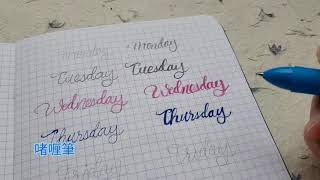 Monday Monday
Tuesday Tuesday
Wednesday Wednesday
Thursday Thursday
Friday Friday
啫喱筆